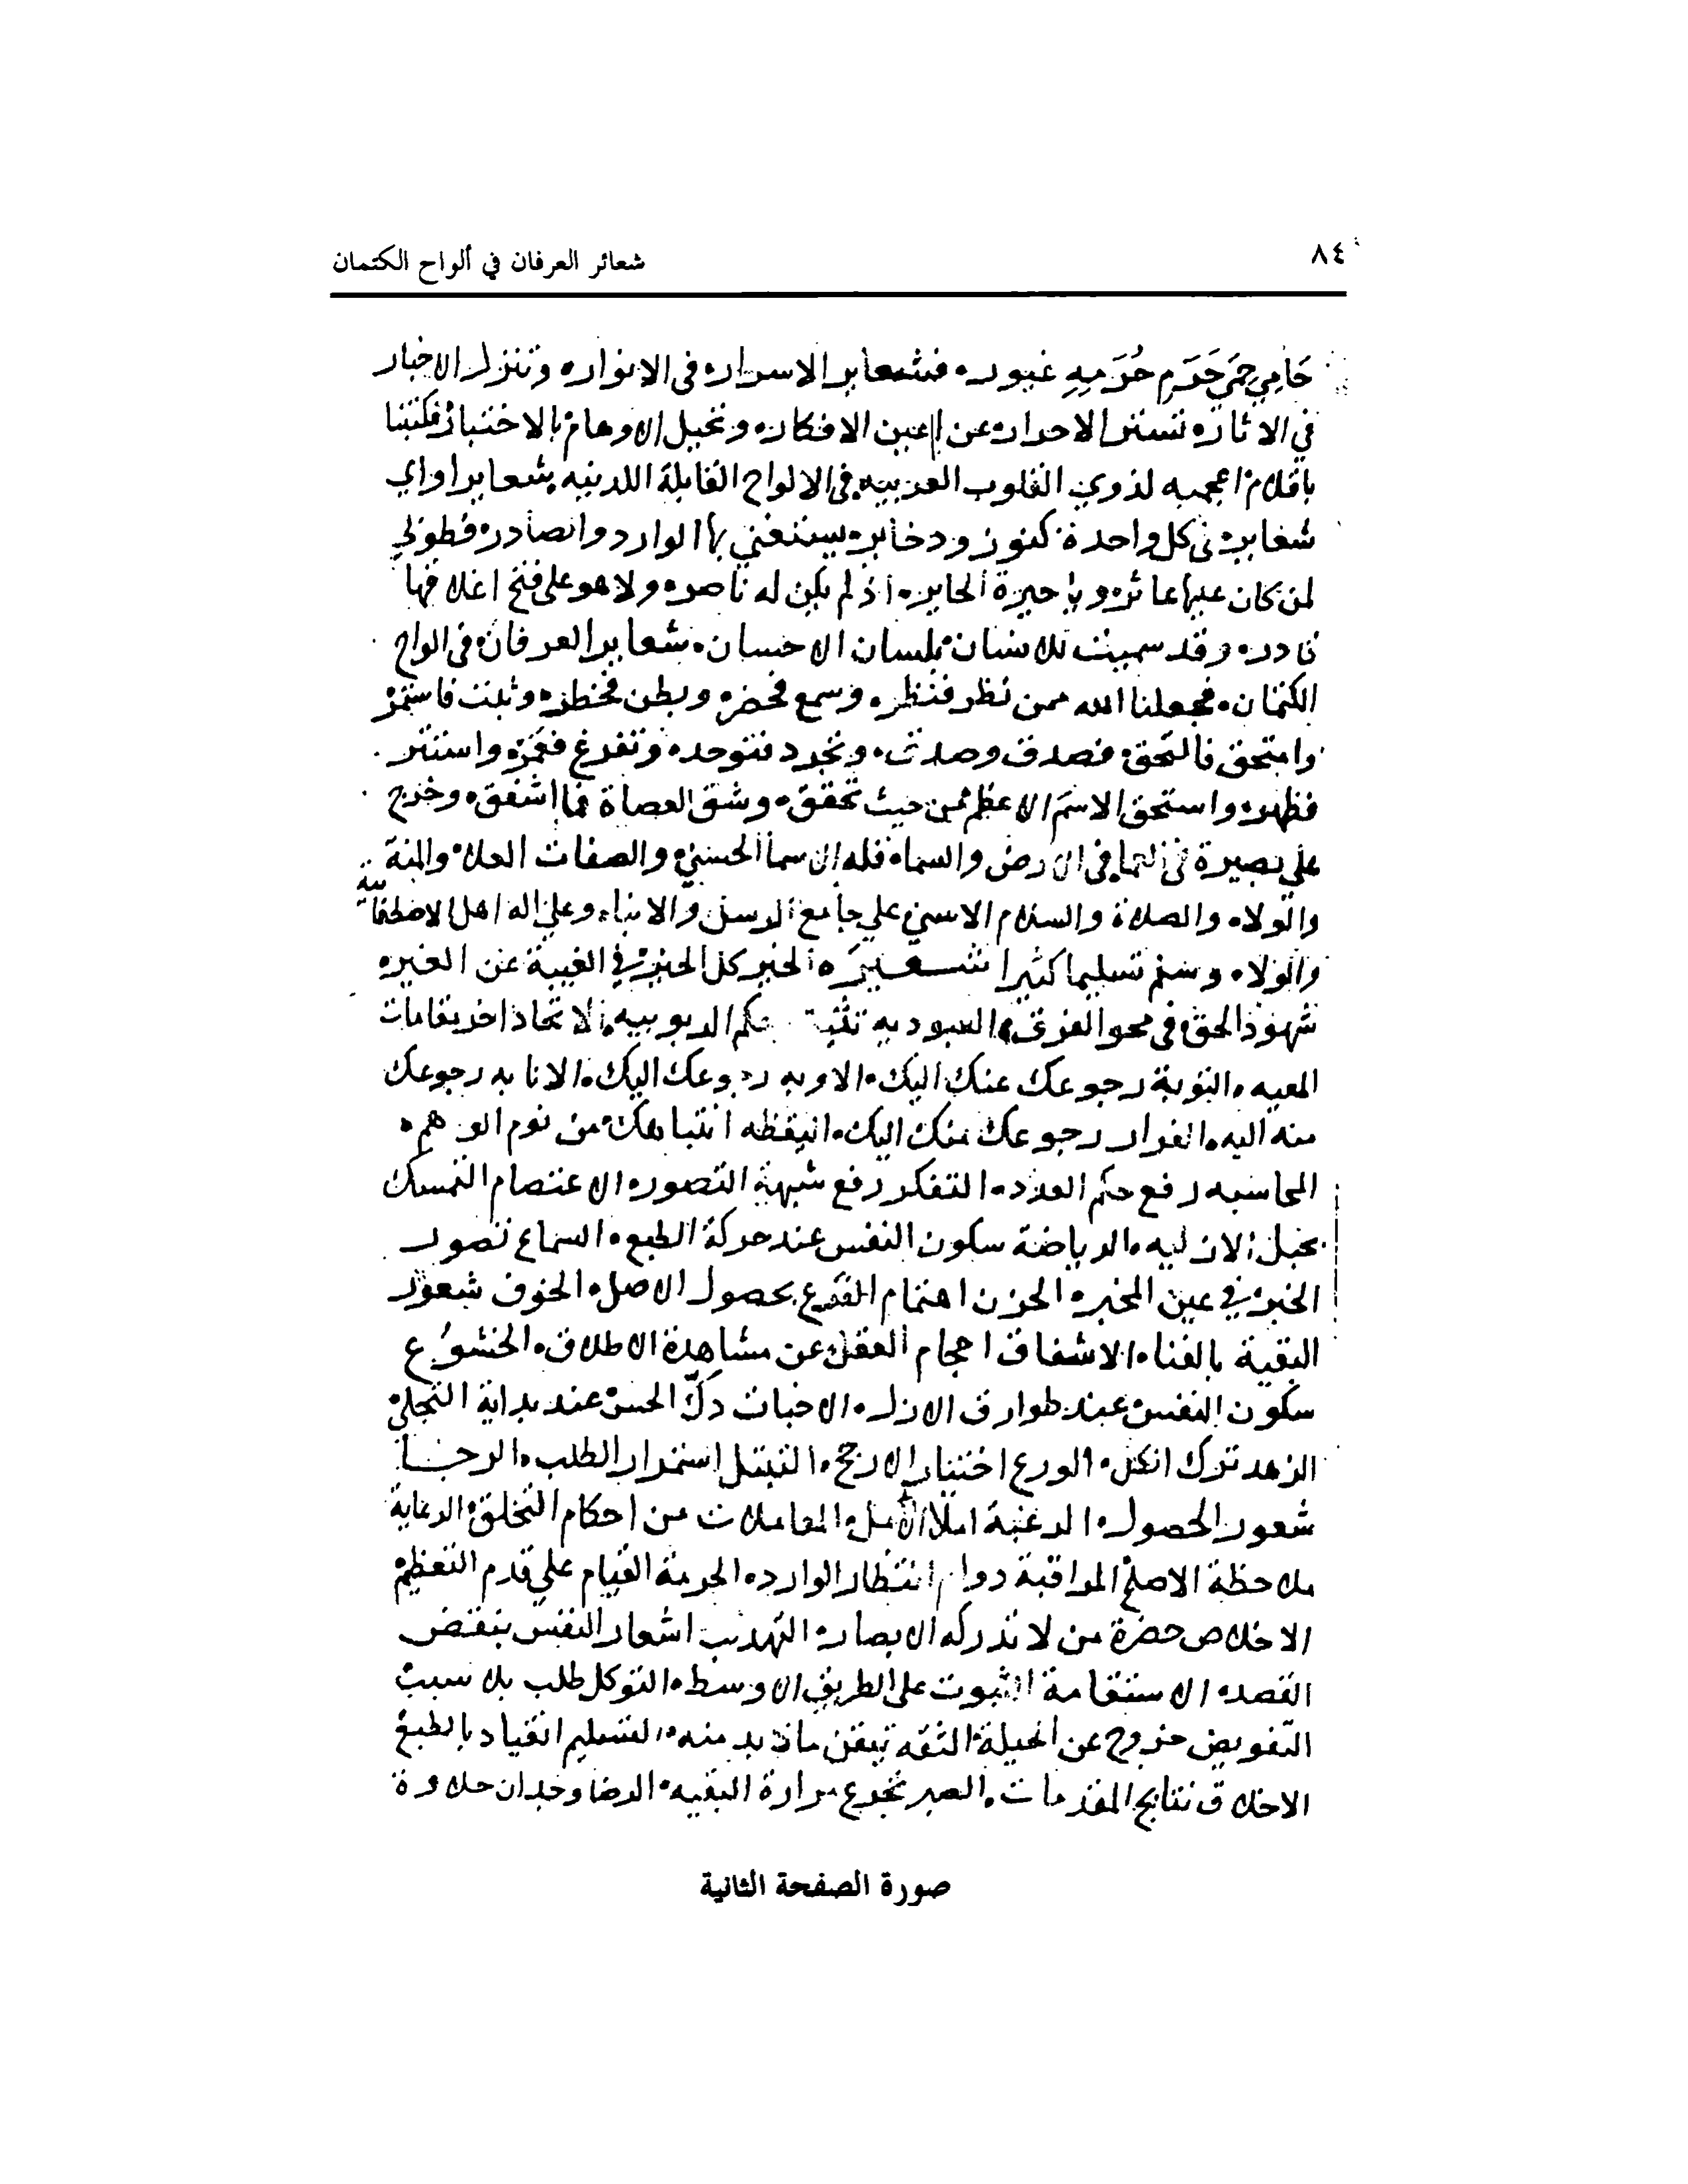 ٨٤
شعائر العرفان في ألواح الكتمان
حَامِي حِمَى حَرَم حُرَمِهِ غيور، فشعاير الاسرار، في الانوار، وتنزل الاخبار
في الاثار، تستر الاحرار، عن اعين الافكار، وتخيل الاوهام بالاختبار، فكتبنا
باقلام اعجميه لذوي القلوب العربيه، في الالواح القابلة اللدنيه، شعاير اواي
شعاير، في كل واحدة كنوز ودخاير، يستغني بها الوارد والصادر، فطوبي
لمن كان عليها عاثر، ويا حيرة الحاير، اذ لم يكن له ناصر، ولا هو على فتح اغلاقها
قادر، وقد سميت للانسان، بلسان الاحسان، شعاير العرفان، في الواح
الكتمان، فجعلنا الله ممن نظر فنظر، وسمع فحضر، وبطن فخطر، وثبت فاستمر
وامتحق فالتحق، فصدق وصدق، وتجرد فتوحد، وتفرغ فغمر، واستتر
فظهر، واستحق الاسم الاعظم من حيث تحقق، وشق العصاة فما اشفق، وخرج
على بصيرة في الما، في الارض والسماء، فله الاسما الحسنى، والصفات العلا، والمنة
والولاء، والصلاة والسلام الاسنى على جامع الرسل والانباء، وعلى اله اهل الاصطفائية
والولاء، وسلم تسليما كثيرا شعيرة الخير كل الخير، في الغيبة عن الغير،
شهود الحق، في محو الفرق، العبوديه حكم الربوبيه، الاتحاد اخر مقامات
المعيه، التوبة رجوعك عنك اليك، الاوبه رجوعك اليك، الانابه رجوعك
منه اليه، الفرار رجوعك منك اليك، اليقظه انتباهك من نوم الوهم،
المحاسبه رفع حكم العدد، التفكر رفع شبهة التصور، الاعتصام التمسك
بحبل الازليه، الرياضة سكون النفس عند حركة الطبع، السماع تصور
الخبر، في عين المخبر، الحزن اهتمام الفرع بحصول الاصل، الخوف شعور
البقية بالفناء، الاشفاق احجام العقل عن مشاهدة الاطلاق، الخشوع
سكون النفس عند طوارق الازل، الاخبات دكّ الحس عند بداية التجلي
الزهد ترك الكل، الورع اختيار الارجح، التبتل استمرار الطلب، الرجا
شعور الحصول، الرغبة املا الامل، المعاملات من احكام التخلق، الرعاية
ملاحظة الاصلح، المراقبة دوام انتظار الوارد، الحرمة القيام على قدم التعظيم
الاخلاص حضرة من لا تدركه الابصار، التهذيب اشعار النفس بنقض
القصد، الاستقامة الثبوت على الطريق الاوسط، التوكل طلب بلا سبب،
التفويض خروج عن الحيلة، الثقه تيقن ما لا بد منه، التسليم انقياد بالطبع
الاخلاق نتايج المقدمات، الصبر تجرع مرارة البقيه، الرضا وجدان حلاوة
صورة الصفحة الثانية